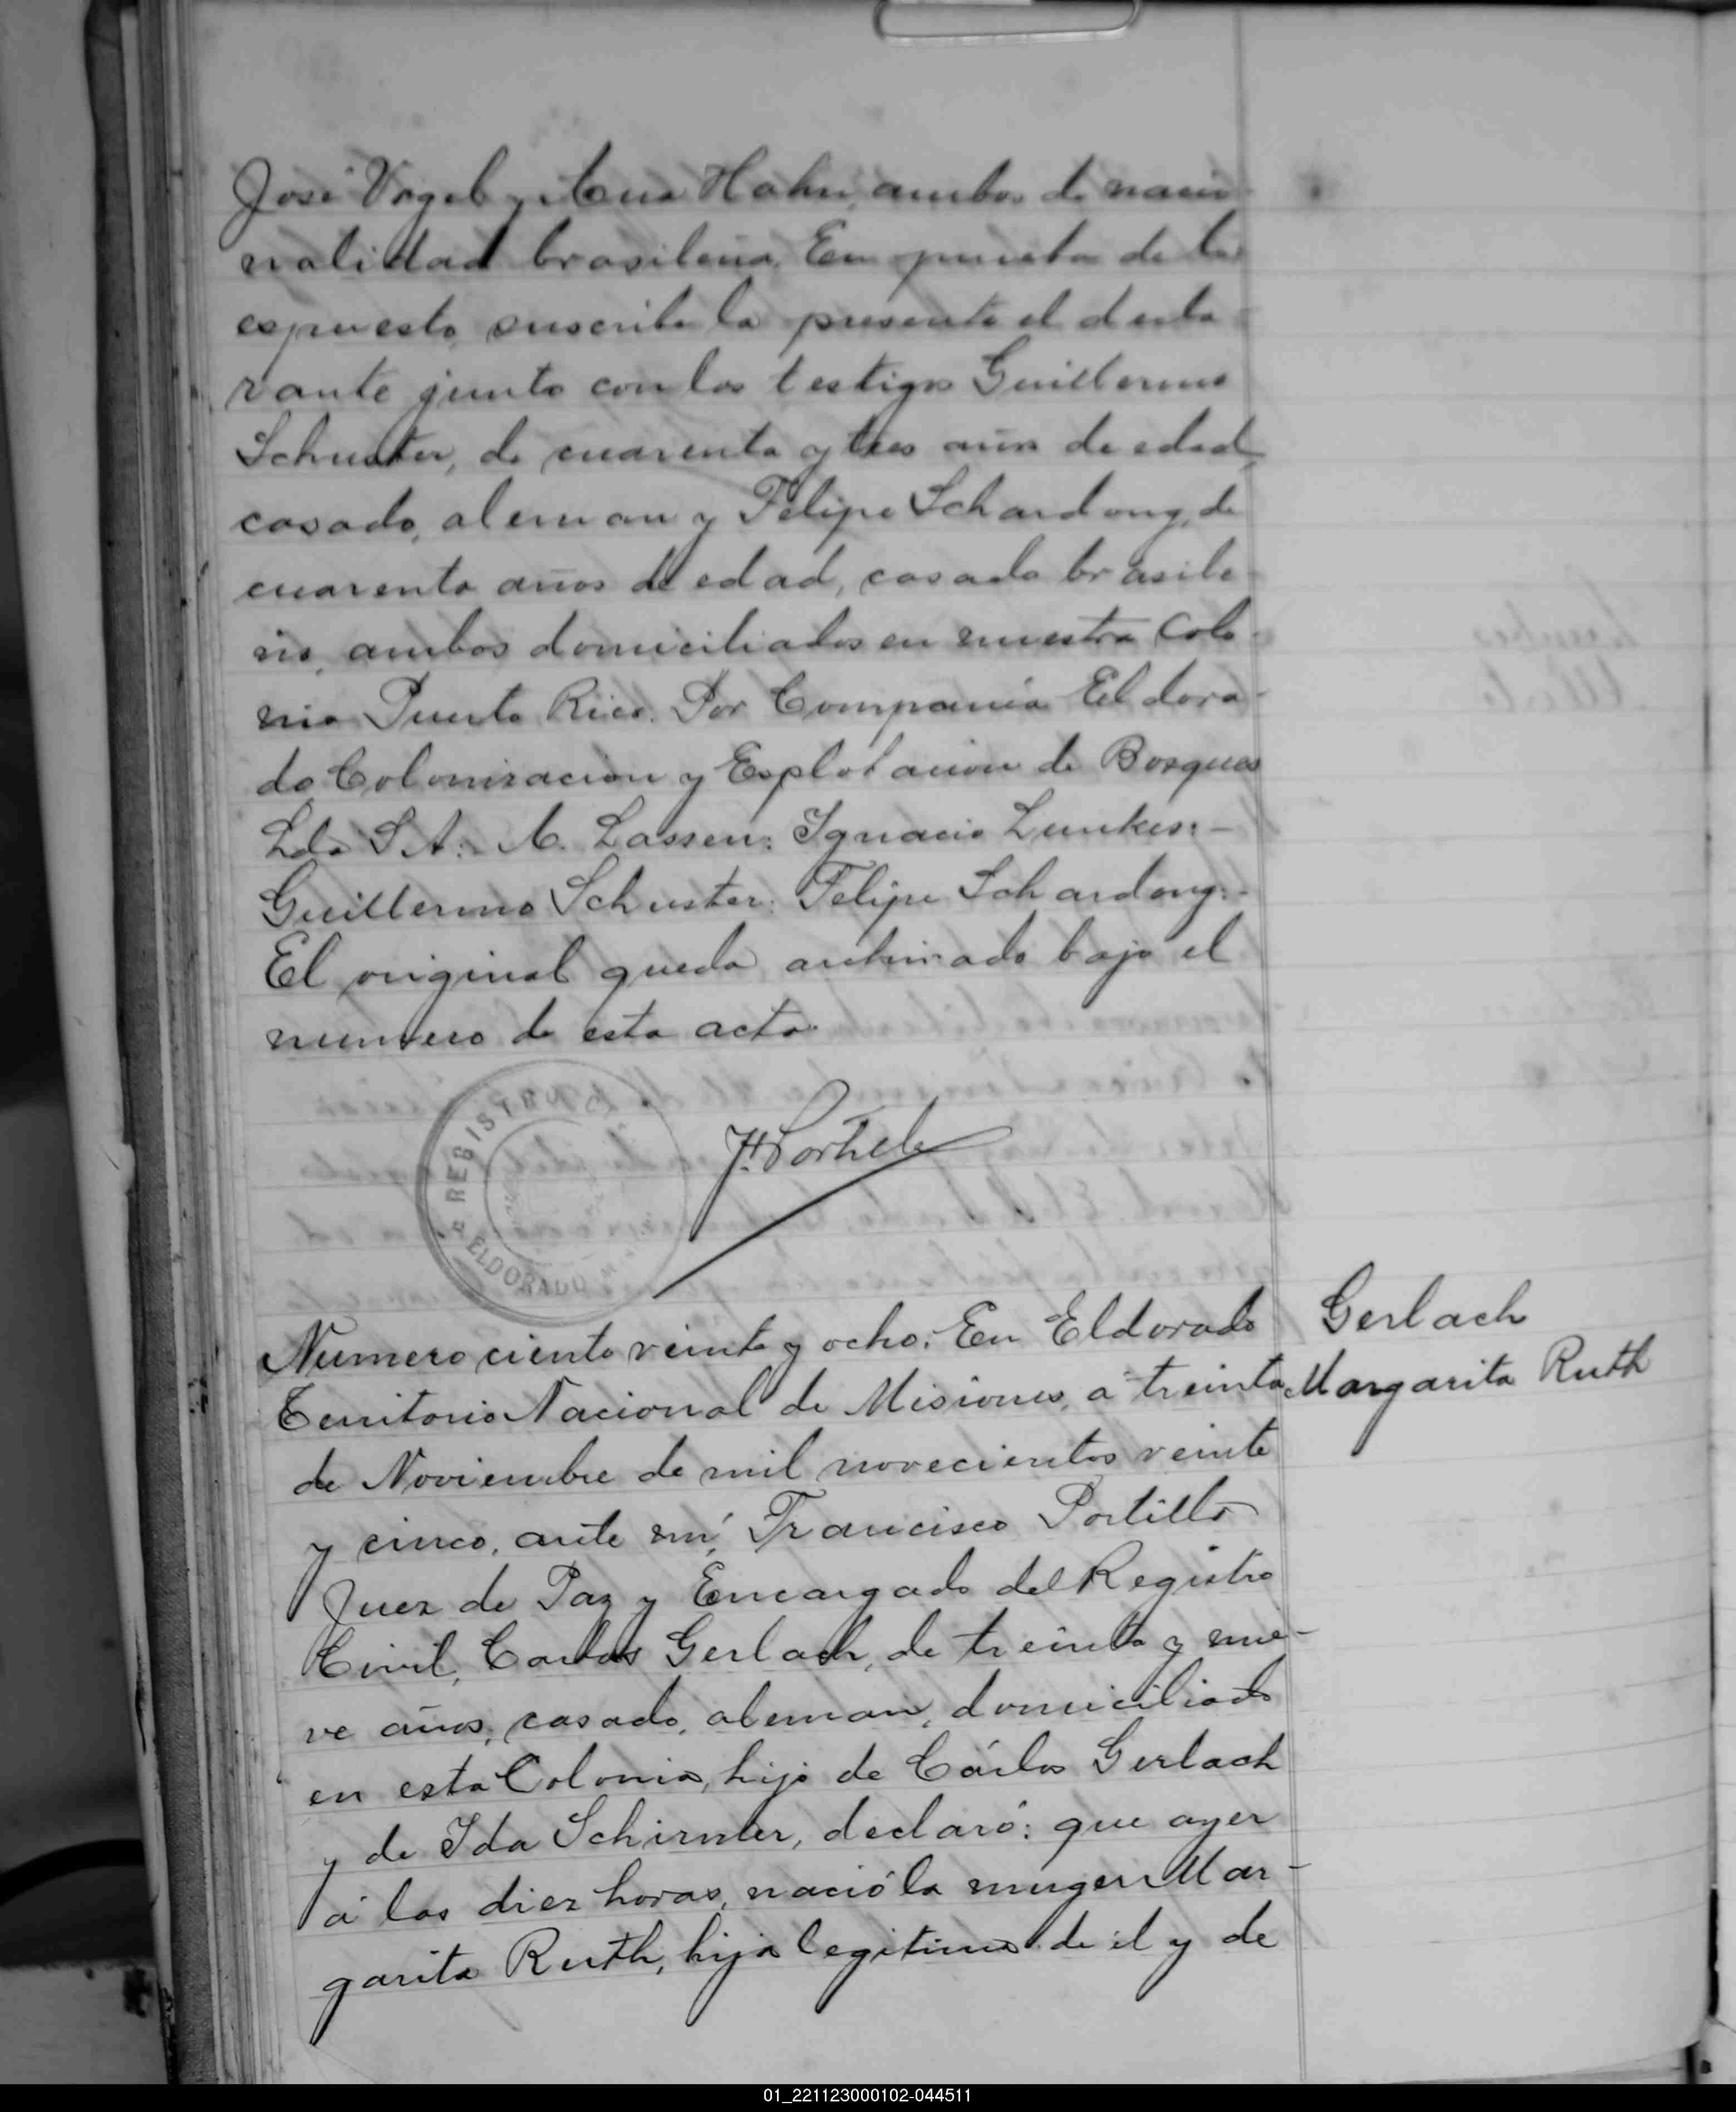 José Vogel y Ana Hahn, ambos de nacio-
nalidad brasileña. En prueba de lo
expuesto, suscribe la presente el decla-
rante junto con los testigos Guillermo
Schuster, de cuarenta y tres años de edad
casado, aleman y Felipe Schardong, de
cuarenta años de edad, casado brasile-
ño, ambos domiciliados en nuestra Colo-
nia Puerto Rico. Por Compañia Eldora-
do Colonizacion y Explotacion de Bosques
Lda S. A. A. Lassen: Ignacio Lunkes:-
Guillermo Schuster: Felipe Schardong:-
El original queda archivado bajo el
numero de esta acta.
REGISTRO
ELDORADO
Numero ciento veinte y ocho: En Eldorado
Gerlach
Territorio Nacional de Misiones, a treinta
Margarita Ruth
de Noviembre de mil novecientos veinte
y cinco, ante mí, Francisco Portillo
Juez de Paz y Encargado del Registro
Civil, Carlos Gerlach, de treinta y nue-
ve años, casado, aleman, domiciliado
en esta Colonia, hijo de Cárlos Gerlach
y de Ida Schirmer, declaró: que ayer
á las diez horas, nació la muger Mar-
garita Ruth, hija legitima de el y de
01_221123000102-044511